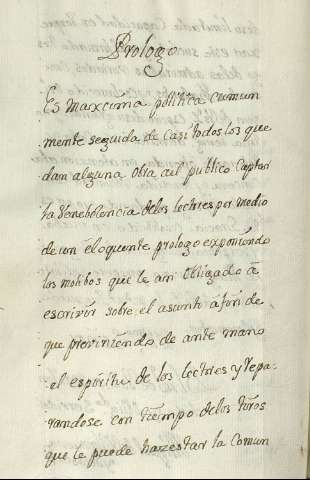 Prologo
Es maxcima politica cumun
mente seguida de casi todos los que
dam alguna obra al publico captar
la Venebolencia delos lectres por medio
de un eloquente prologo exponiendo
los motibos que le an obligado á
escrivir sobre el asunto á fin de
que previniendo de ante mano
el espiritu de los lectres y repa-
randose con tiempo delos tiros
que le puede hazestar la comun